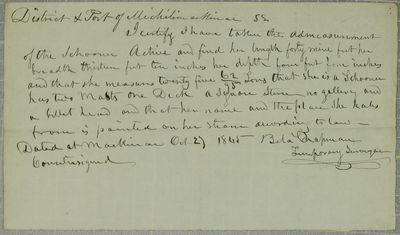 District & Port of Michilimackinac SS.
I certify I have taken the admeasurement
of the Schooner Active and find her length forty nine feet her
breadth thirteen feet ten inches her depth four feet nine inches
and that she measures twenty five 62/95 Tons that she is a Schooner
has two Masts one Deck a Square Stern no gallery and
a billet head and that her name and the place She hails
from is painted on her Stern according to law
Dated at Mackinac Oct. 27 1845 Bela Chapman
Countersigned Temporary Surveyor